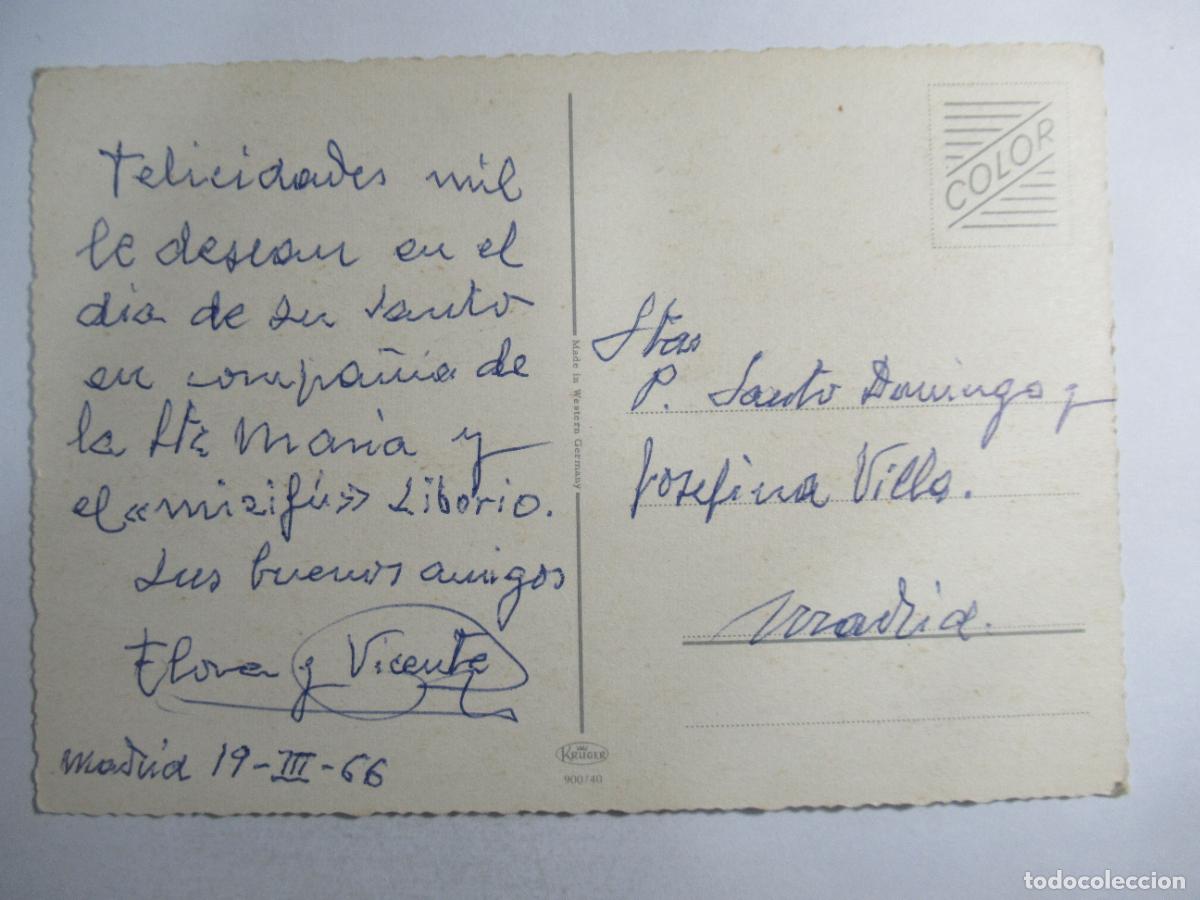 Felicidades mil
le desean en el
dia de su santo
en compañia de
la Sta Maria y
el «mizifú» Liborio.
Sus buenos amigos
Flora y Vicente
Madrid 19-III-66
Made in Western Germany
KRÜGER
900/40
COLOR
Stas
P. Santo Domingo y
Josefina Villa.
Madrid.
todocoleccion